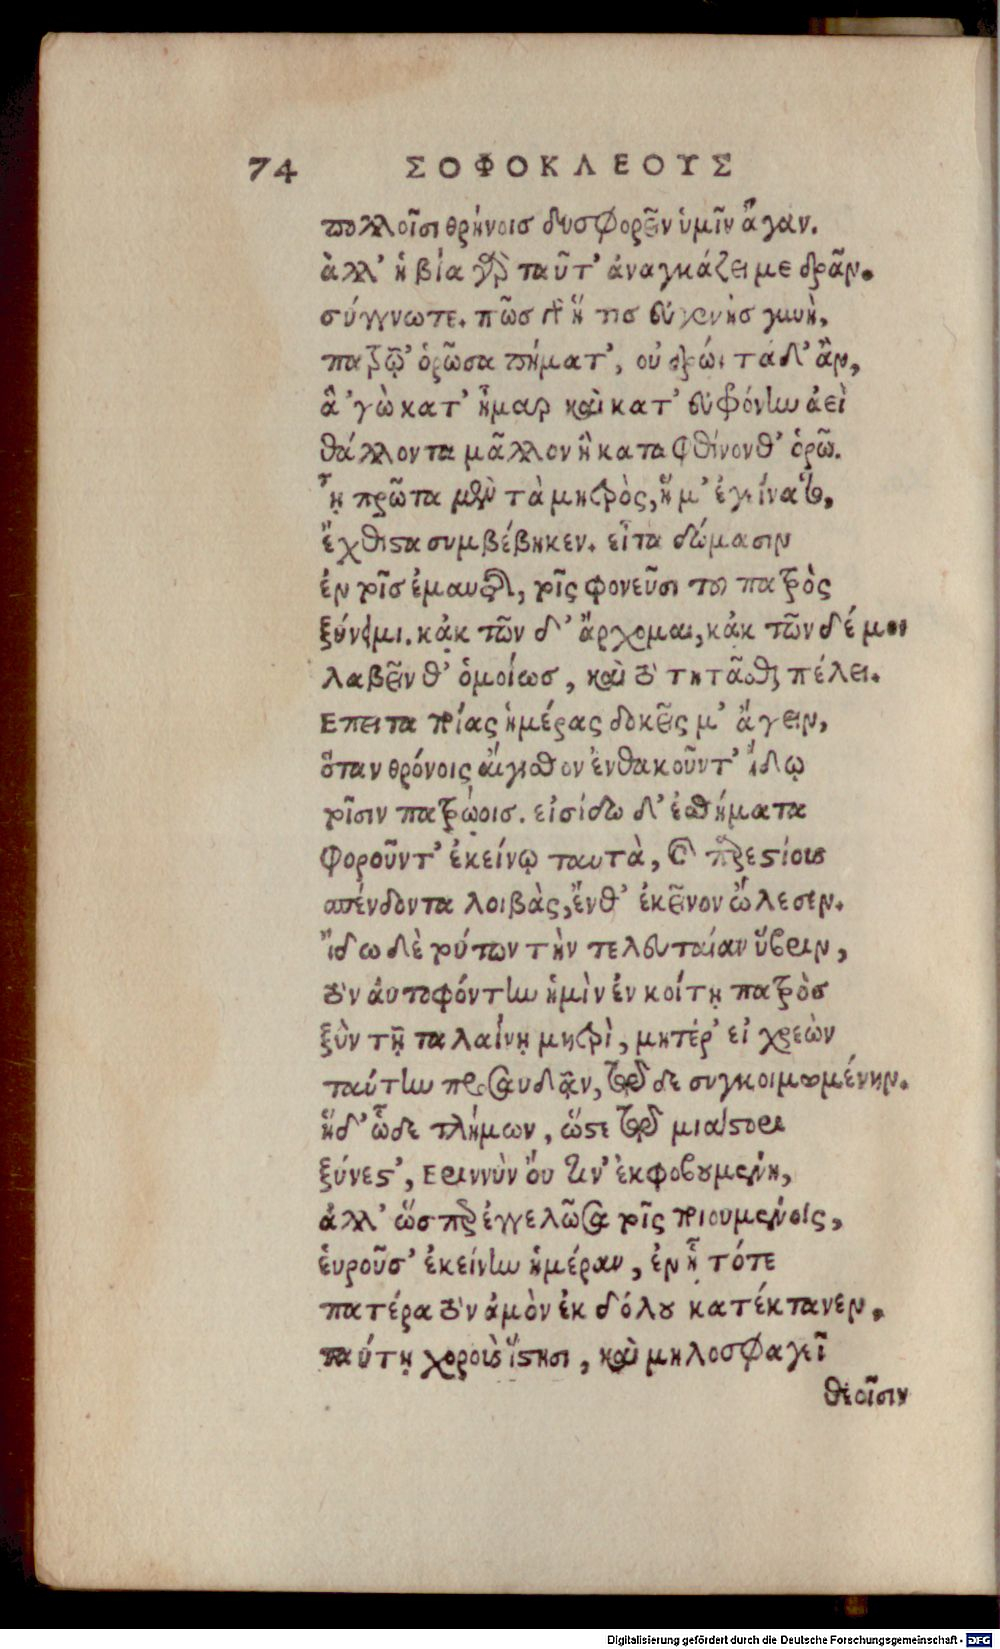 74 ΣΟΦΟΚΛΕΟΥΣ
πολλοῖσι θρήνοις δυσφορεῖν ὑμῖν ἄγαν.
ἀλλ' ἡ βία γὰρ ταῦτ' ἀναγκάζει με δρᾶν.
σύγγνωτε. πῶς γὰρ ἥ τις εὐγενὴς γυνὴ,
πατρῷ' ὁρῶσα πήματ', οὐ δρῴι τάδ' ἂν,
ἃ 'γὼ κατ' ἦμαρ καὶ κατ' εὐφρόνην ἀεὶ
θάλλοντα μᾶλλον ἢ καταφθίνονθ' ὁρῶ.
ᾗ πρῶτα μὲν τὰ μητρὸς, ἥ μ' ἐγείνατο,
ἔχθιστα συμβέβηκεν. εἶτα δώμασιν
ἐν τοῖς ἐμαυτῆς, τοῖς φονεῦσι τοῦ πατρὸς
ξύνειμι. κἀκ τῶν δ' ἄρχομαι, κἀκ τῶν δέ μοι
λαβεῖν θ' ὁμοίως, καὶ τὸ τητᾶσθαι πέλει.
Επειτα ποίας ἡμέρας δοκεῖς μ' ἄγειν,
ὅταν θρόνοις αἴγισθον ἐνθακοῦντ' ἴδω
τοῖσιν πατρῴοις. εἰσίδω δ' ἐσθήματα
φοροῦντ' ἐκείνῳ ταυτὰ, καὶ παρεστίους
σπένδοντα λοιβὰς, ἔνθ' ἐκεῖνον ὤλεσεν.
ἴδω δὲ τούτων τὴν τελευταίαν ὕβριν,
τὸν αὐτοφόντην ἡμὶν ἐν κοίτῃ πατρὸς
ξὺν τῇ ταλαίνῃ μητρὶ, μητέρ' εἰ χρεὼν
ταύτην προσαυδᾶν, τῷδε συγκοιμωμένην.
ἥδ' ὧδε τλήμων, ὥστε τῷ μιάστορι
ξύνεστ', Εριννὺν οὔ τιν' ἐκφοβουμένη,
ἀλλ' ὥσπερ ἐγγελῶσα τοῖς ποιουμένοις,
εὑροῦσ' ἐκείνην ἡμέραν, ἐν ᾗ τότε
πατέρα τὸν ἀμὸν ἐκ δόλου κατέκτανεν.
ταύτῃ χοροὺς ἵστησι, καὶ μηλοσφαγεῖ
θεοῖσιν
Digitalisierung gefördert durch die Deutsche Forschungsgemeinschaft - DFG